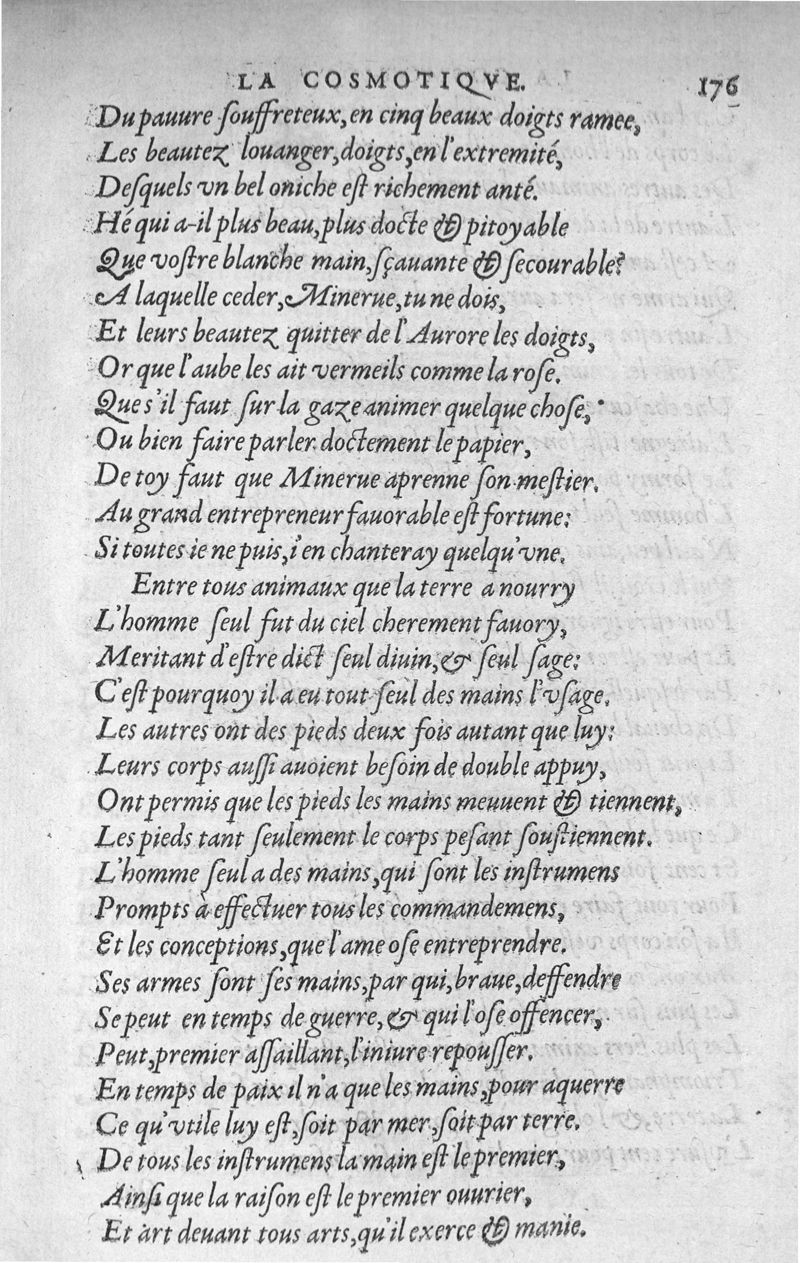 LA COSMOTIQVE. 176
Du pauure ſouffreteux, en cinq beaux doigts ramee,
Les beautez louanger, doigts, en l'extremité,
Deſquels vn bel oniche eſt richement anté.
Hé qui a-il plus beau, plus docte & pitoyable
Que voſtre blanche main, ſçauante & ſecourable?
A laquelle ceder, Minerue, tu ne dois,
Et leurs beautez quitter de l'Aurore les doigts,
Or que l'aube les ait vermeils comme la roſe.
Que s'il faut ſur la gaze animer quelque choſe,
Ou bien faire parler doctement le papier,
De toy faut que Minerue aprenne ſon meſtier.
Au grand entrepreneur fauorable eſt fortune:
Si toutes ie ne puis, i'en chanteray quelqu'vne.
Entre tous animaux que la terre a nourry
L'homme ſeul fut du ciel cherement fauory,
Meritant d'eſtre dict ſeul diuin, & ſeul ſage:
C'eſt pourquoy il a eu tout ſeul des mains l'vſage.
Les autres ont des pieds deux fois autant que luy:
Leurs corps auſſi auoient beſoin de double appuy,
Ont permis que les pieds les mains meuuent & tiennent,
Les pieds tant ſeulement le corps peſant ſouſtiennent.
L'homme ſeul a des mains, qui ſont les inſtrumens
Prompts à effectuer tous les commandemens,
Et les conceptions, que l'ame oſe entreprendre.
Ses armes ſont ſes mains, par qui, braue, deffendre
Se peut en temps de guerre, & qui l'oſe offencer,
Peut, premier aſſaillant, l'iniure repouſſer.
En temps de paix il n'a que les mains, pour aquerre
Ce qu'vtile luy eſt, ſoit par mer, ſoit par terre.
De tous les inſtrumens la main eſt le premier,
Ainſi que la raiſon eſt le premier ouurier,
Et art deuant tous arts, qu'il exerce & manie.